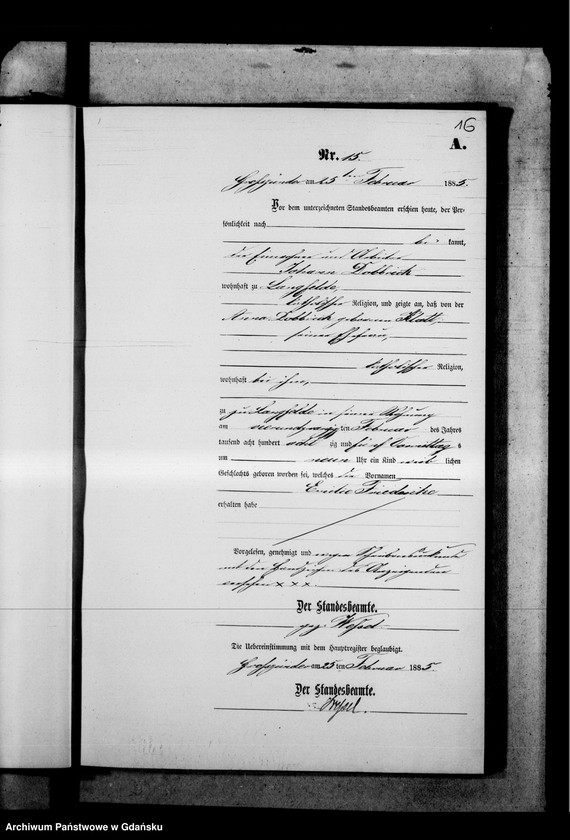 16
A.
Nr. 15.
Großzünder am 25ten Februar 1885.
Vor dem unterzeichneten Standesbeamten erschien heute, der Per-
sönlichkeit nach
be kannt,
der Einwohner und Arbeiter
Johann Dobbrick
wohnhaft zu Langfelde,
katholischer Religion, und zeigte an, daß von der
Anna Dobbrick geborenen Klatt,
seiner Ehefrau,
katholischer Religion,
wohnhaft bei ihm,
zu Langfelde in seiner Wohnung
am vierundzwanzig ten Februar des Jahres
tausend acht hundert acht zig und fünf Vormittag s
um neun Uhr ein Kind weib lichen
Geschlechts geboren worden sei, welches die Vornamen
Emilie Friederike
erhalten habe
Vorgelesen, genehmigt und wegen Schreibensunkunde
mit den Handzeichen des Anzeigenden
versehen x x x
Der Standesbeamte.
gez. Wessel
Die Uebereinstimmung mit dem Hauptregister beglaubigt.
Großzünder am 25 ten Februar 1885.
Der Standesbeamte.
Wessel.
Archiwum Państwowe w Gdańsku